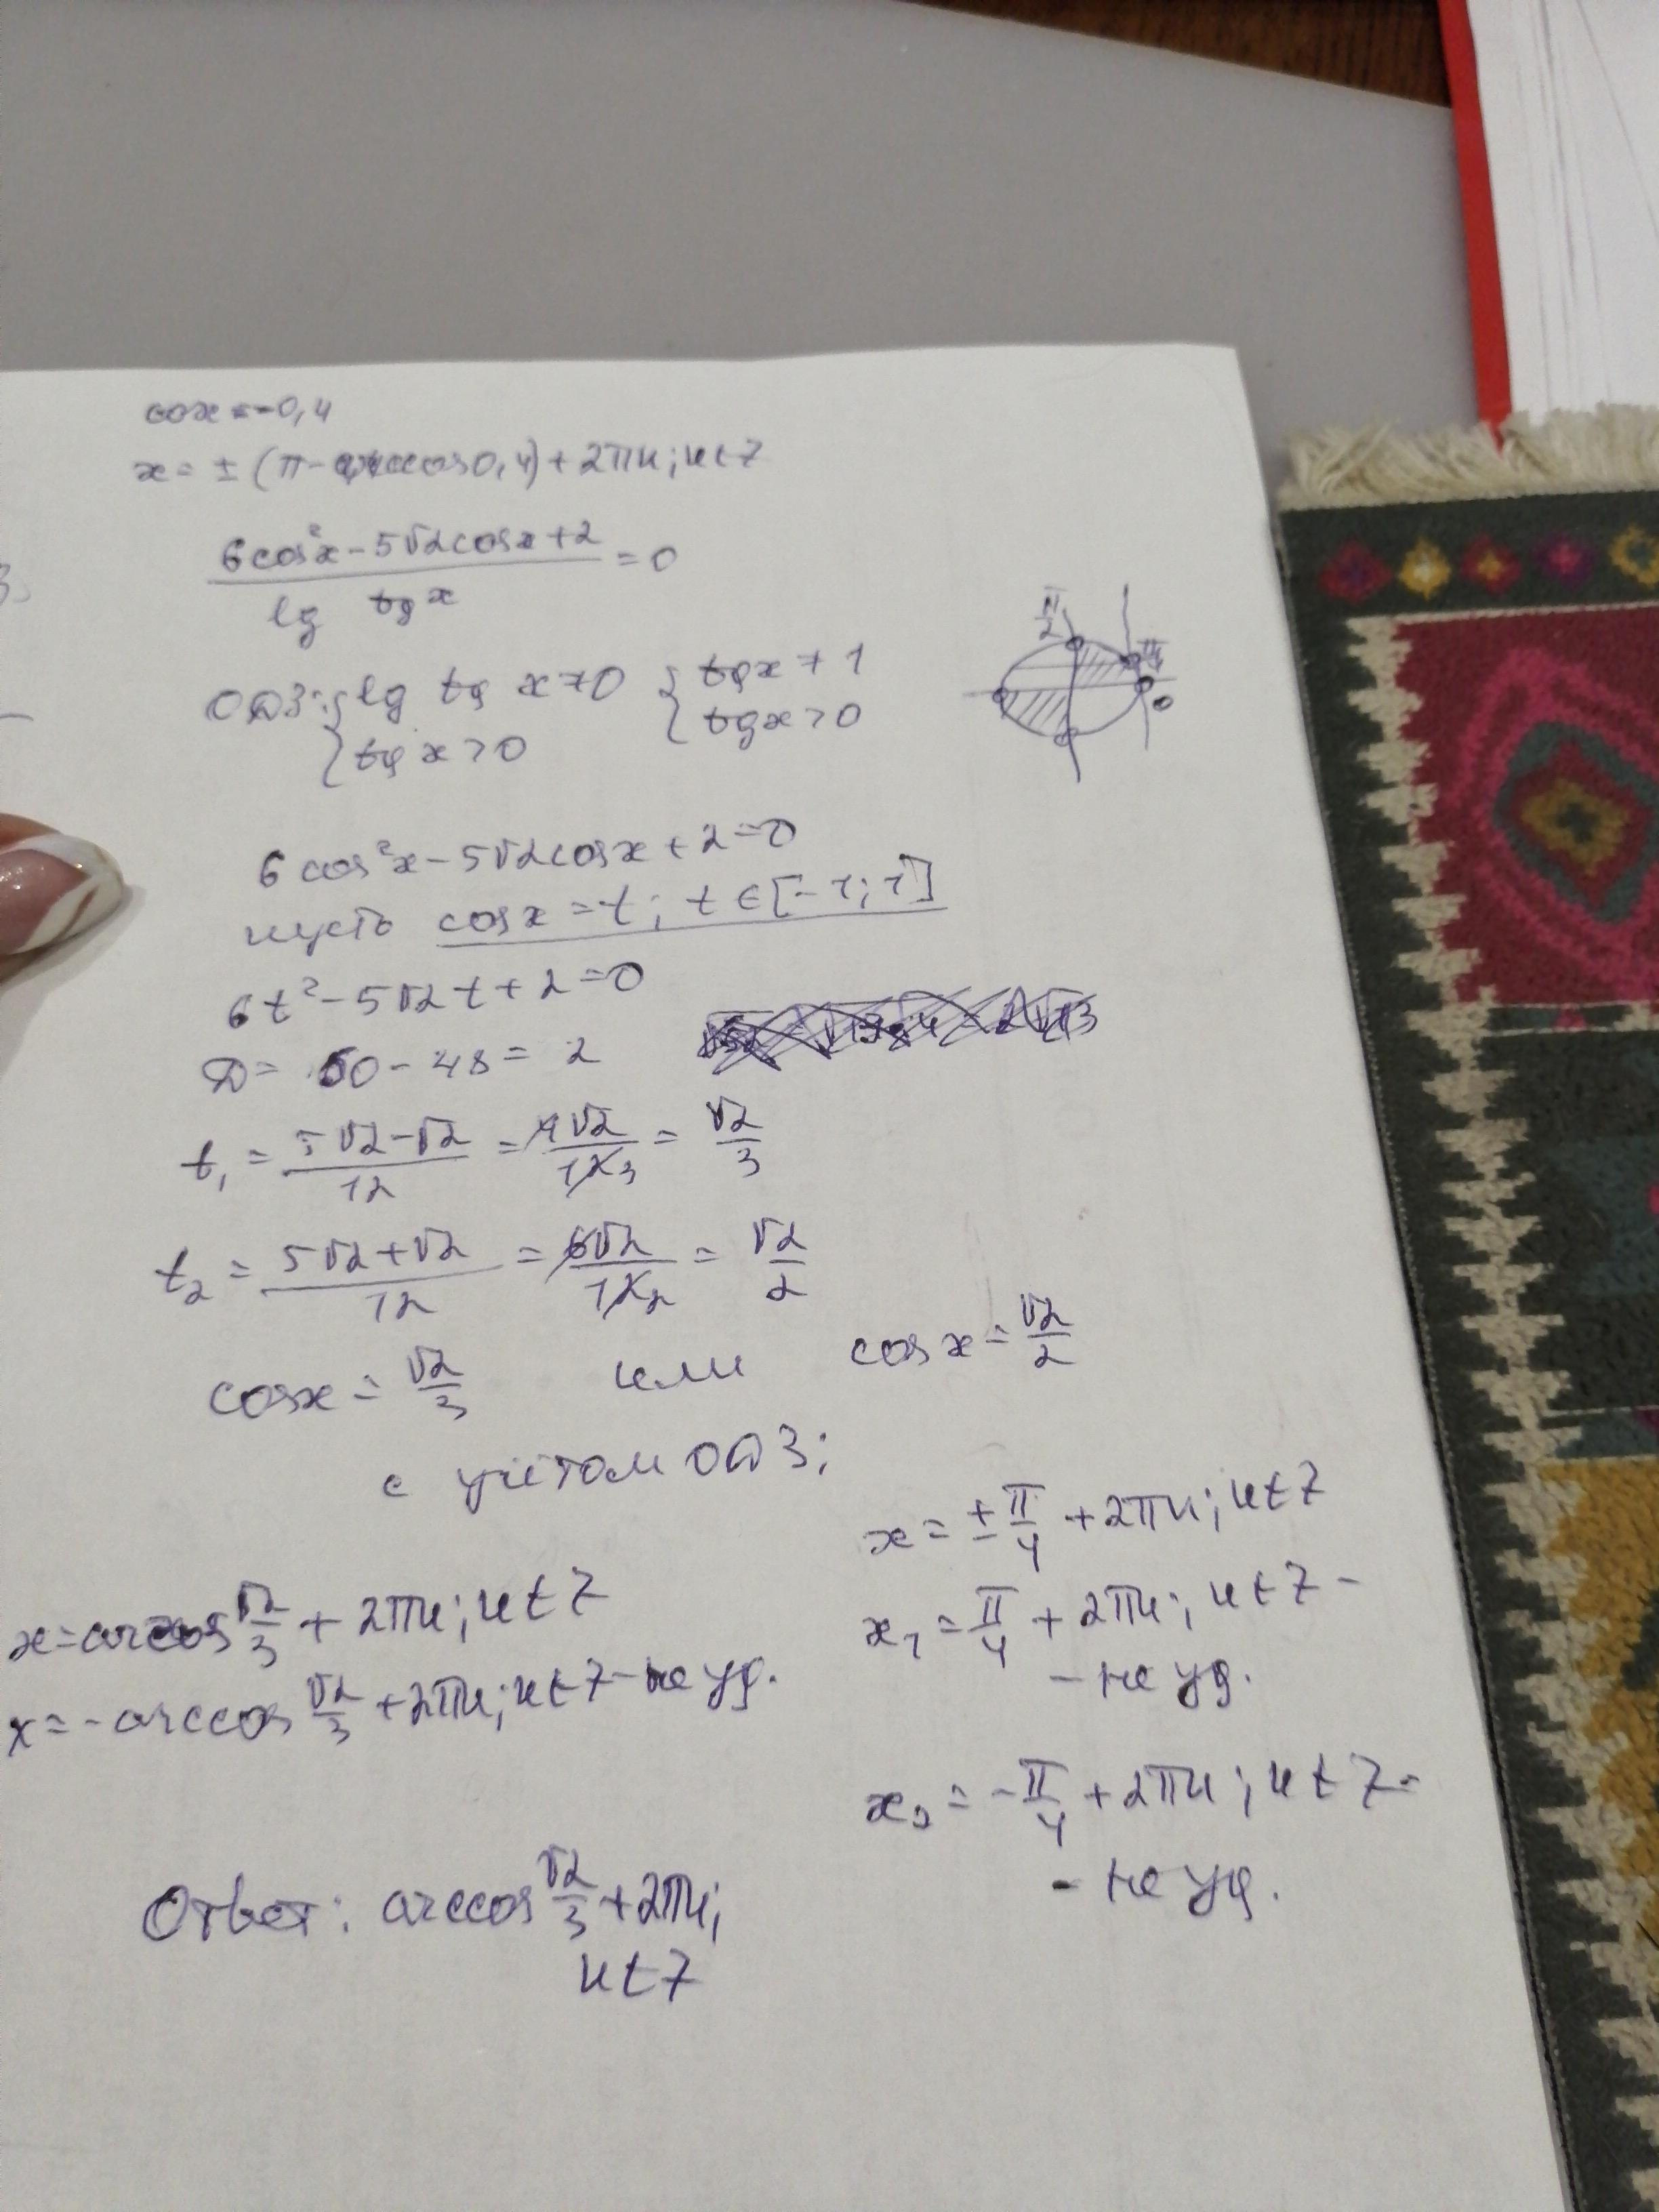 cosx = -0,4
x = ± (π - arccos0,4) + 2πn; n∈Z
3.
(6cos²x - 5√2cosx + 2) / (lg tgx) = 0
ОДЗ: { lg tg x ≠ 0 { tgx ≠ 1
{ tg x > 0 { tgx > 0
π/2
π/4
0
6cos²x - 5√2cosx + 2 = 0
пусть cosx = t; t ∈ [-1; 1]
6t² - 5√2t + 2 = 0
D = 50 - 48 = 2
t₁ = (5√2 - √2)/12 = 4√2/12 3 = √2/3
t₂ = (5√2 + √2)/12 = 6√2/12 2 = √2/2
cosx = √2/3 или cosx = √2/2
с учётом ОДЗ:
x = ± π/4 + 2πn; n∈Z
x = arccos √2/3 + 2πn; n∈Z
x₁ = π/4 + 2πn; n∈Z -
- не уд.
x = -arccos √2/3 + 2πn; n∈Z - не уд.
x₂ = -π/4 + 2πn; n∈Z -
- не уд.
Ответ: arccos √2/3 + 2πn;
n∈Z